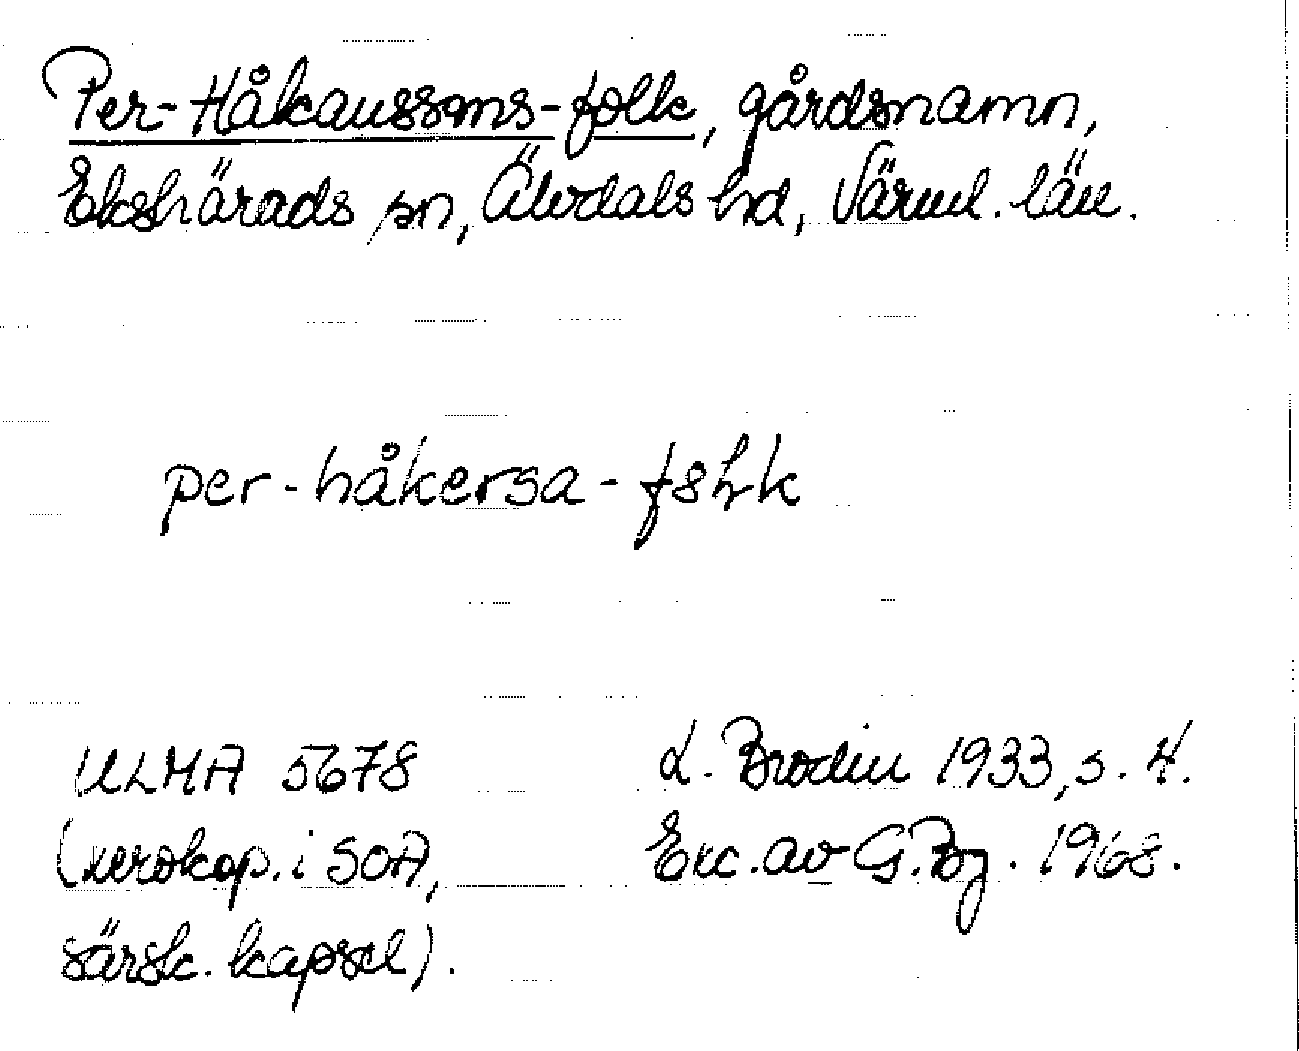 Per-Håkanssons-folk, gårdsnamn,
Ekshärads sn, Älvdals hd, Värml. län.
per-håkersa-
ULMA 5678
(xerokop. i SOA,
särsk. kapsel).
L. Brodin 1933, s. 4.
Exc. av G. Bg. 1968.